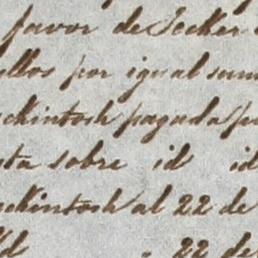 favor de Secker
ellos por igual sum
ackintosh pagada p
sta sobre id id
ackintosh al 22 de
Id 22 de